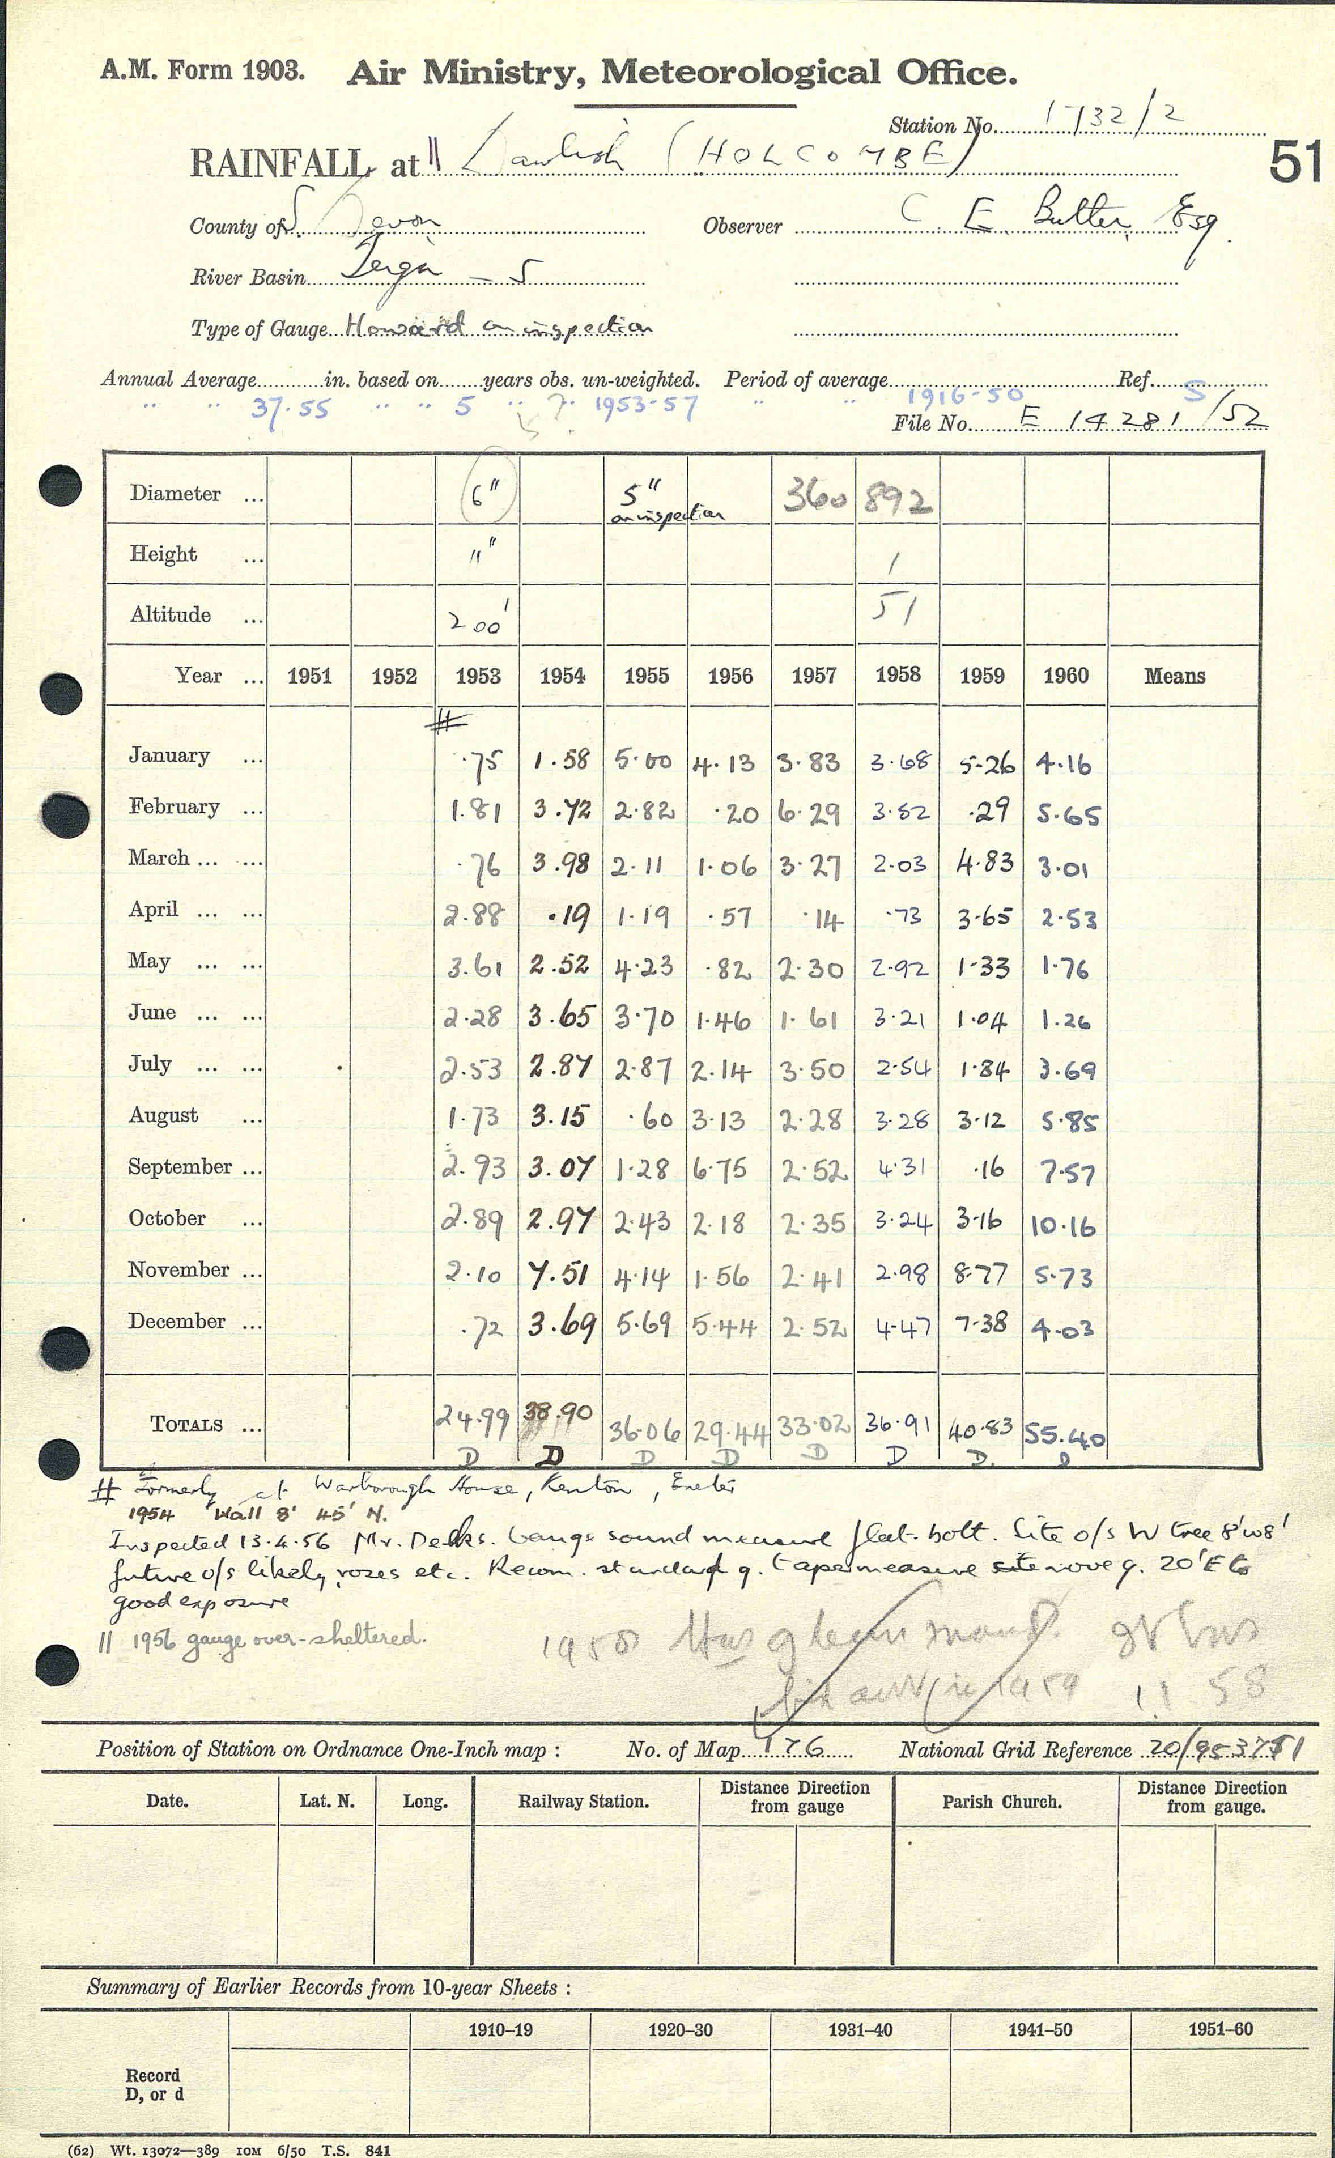 A.M. Form 1903. Air Ministry, Meteorological Office.
Station No. 1732/2
RAINFALL at || Dawlish (HOLCOMBE)
51
County of S. Devon Observer C. E. Butter, Esq.
River Basin Teign - S
Type of Gauge Howard on inspection
Annual Average in. based on years obs. un-weighted. Period of average Ref. S
" " 37.55 " " 5 " ?" 1953-57 " " 1916-50
File No. E 14281/52
Diameter ... 6" 5" on inspection 360 892
Height ... 11" 1
Altitude ... 200' 51
Year ... 1951 1952 1953 1954 1955 1956 1957 1958 1959 1960 Means
#
January ... .75 1.58 5.00 4.13 3.83 3.68 5.26 4.16
February ... 1.81 3.72 2.82 .20 6.29 3.52 .29 5.65
March ... ... .76 3.98 2.11 1.06 3.27 2.03 4.83 3.01
April ... ... 2.88 .19 1.19 .57 .14 .73 3.65 2.53
May ... ... 3.61 2.52 4.23 .82 2.30 2.92 1.33 1.76
June ... ... 2.28 3.65 3.70 1.46 1.61 3.21 1.04 1.26
July ... ... 2.53 2.87 2.87 2.14 3.50 2.54 1.84 3.69
August ... 1.73 3.15 .60 3.13 2.28 3.28 3.12 5.85
September ... 2.93 3.07 1.28 6.75 2.52 4.31 .16 7.57
October ... 2.89 2.97 2.43 2.18 2.35 3.24 3.16 10.16
November ... 2.10 7.51 4.14 1.56 2.41 2.98 8.77 5.73
December ... .72 3.69 5.69 5.44 2.52 4.47 7.38 4.03
TOTALS ... 24.99 38.90 36.06 29.44 33.02 36.91 40.83 55.40
D D D D D D D. D
# Formerly at Warborough House, Kenton, Exeter
1954 Wall 8' 45' N.
Inspected 13.4.56 Mr. Gauge sound measure flat. bott. Site o/s W tree 8' w8'
future o/s likely, roses etc. Recom. standard g. taper measure move g. 20'E to
good exposure
|| 1956 gauge over-sheltered.
1958 Has
1959 11 58
Position of Station on Ordnance One-Inch map : No. of Map 176 National Grid Reference 20/953751
Date. Lat. N. Long. Railway Station. Distance Direction from gauge Parish Church. Distance Direction from gauge.
Summary of Earlier Records from 10-year Sheets :
1910–19 1920–30 1931–40 1941–50 1951–60
Record
D, or d
(62) Wt. 13072—389 10M 6/50 T.S. 841